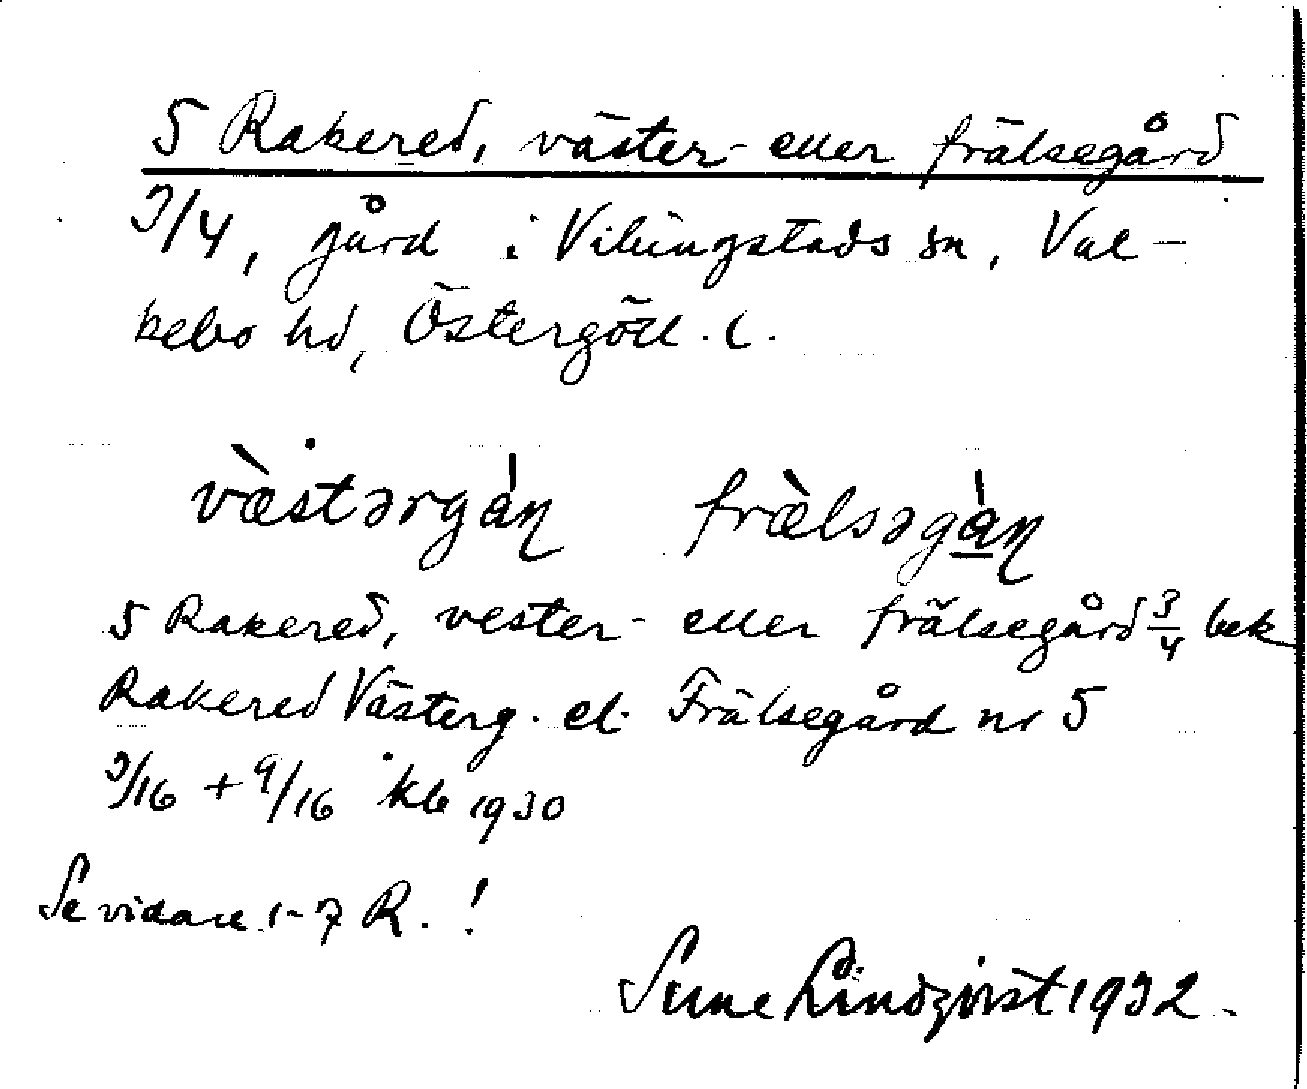 5 Rakered, väster- eller frälsegård
3/4, gård i Vikingstads sn, Val-
kebo hd, Östergötl. l.
væ̀stərgán fræ̀lsəgàn
5 Rakered, vester- eller frälsegård 3/4 bek
Rakered Västerg. el. Frälsegård nr 5
3/16 + 9/16 Jkb 1930
Se vidare 1-7 R. !
Sune Lindqvist 1932.